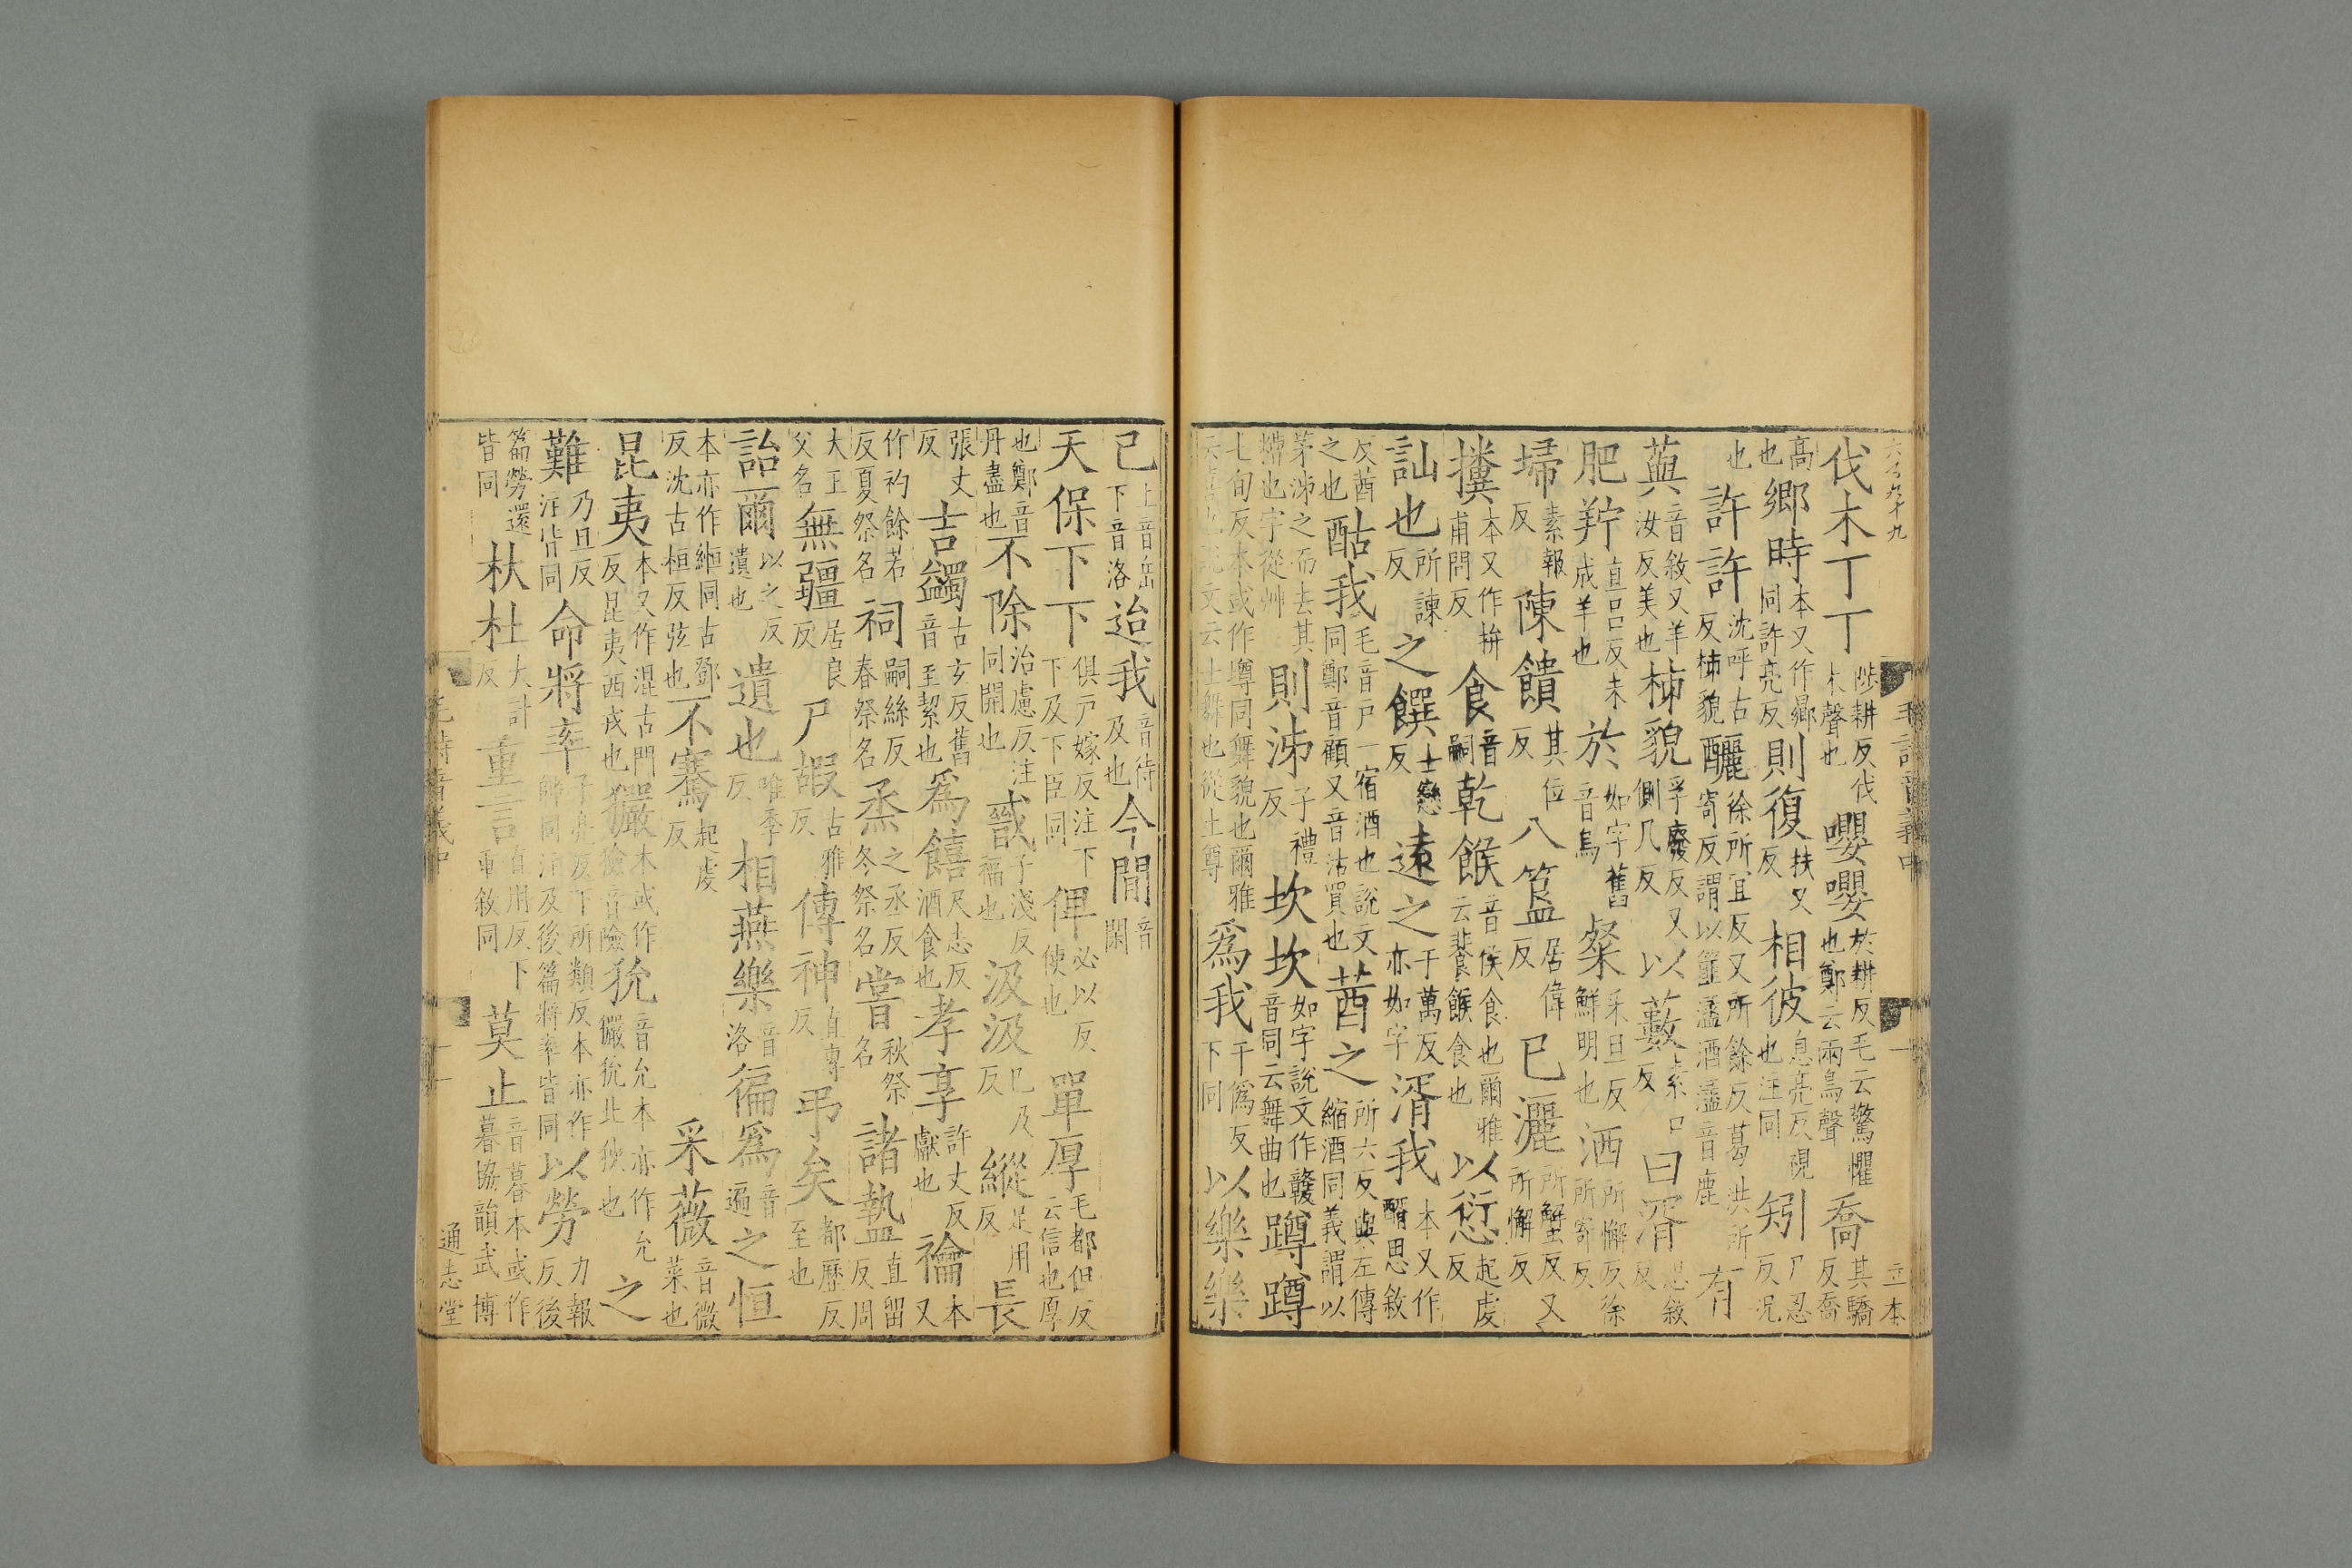 六百九十九 毛詩音義中 一 立本
伐木丁丁陟耕反伐木聲也嚶嚶於耕反毛云驚懼也鄭云兩鳥聲喬其驕反喬
高也鄉時本又作鄉同許亮反則復扶又反相彼息亮反視也注同矧尸忍反況
也許許沈呼古反柹貌釃徐所宜反又所餘反葛洪所寄反謂以筐盪酒盪音鹿有
藇音敘又羊汝反美也柹貌孚廢反又側几反以藪素口反曰湑思敘反
肥羜直呂反未成羊也於如字舊音烏粲采旦反鮮明也洒所懈反徐所寄反
埽素報反陳饋其位反八簋居偉反已灑所蟹反又所懈反
本又作拚甫問反食音嗣乾餱音侯食也爾雅云餥餱食也以愆起虔反
訕也所諫反之饌士戀反遠之于萬反亦如字湑我本又作醑思敘
反莤之也酤我毛音戶一宿酒也說文同鄭音顧又音沽買也莤之所六反與左傳縮酒同義謂以
茅泲之而去其糟也字從艸則泲子禮反坎坎如字說文作竷音同云舞曲也蹲蹲
七旬反本或作墫同舞貌也爾雅云喜也說文云士舞也從士尊爲我于僞反下同以樂樂
已上音岳下音洛迨我音待及也今閒音閑
天保下下俱戶嫁反注下下及下臣同俾必以反使也單厚毛都但反云信也厚
也鄭音丹盡也不除治慮反注同開也戩子淺反福也汲汲已及反縱足用反長
張丈反吉蠲古玄反舊音圭絜也爲饎尺志反酒食也孝享許丈反獻也禴本又
作礿餘若反夏祭名祠嗣絲反春祭名烝之丞反冬祭名嘗秋祭名諸盩直留反周
大王父名無疆居良反尸嘏古雅反傳神直專反弔矣都歷反至也
詒爾以之反遺也遺也唯季反相燕樂音洛徧爲音遍之恒
本亦作縆同古鄧反沈古桓反弦也不騫起虔反采薇音微菜也
昆夷本又作混古門反昆夷西戎也玁本或作獫音險狁音允本亦作允玁狁北狄也之
難乃旦反注皆同命將率子亮反下所類反本亦作帥同注及後篇將率皆同以勞力報反後
篇勞還皆同杕杜大計反重言直用反下重敘同莫止音暮本或作暮協韻武博
毛詩音義中 一 通志堂